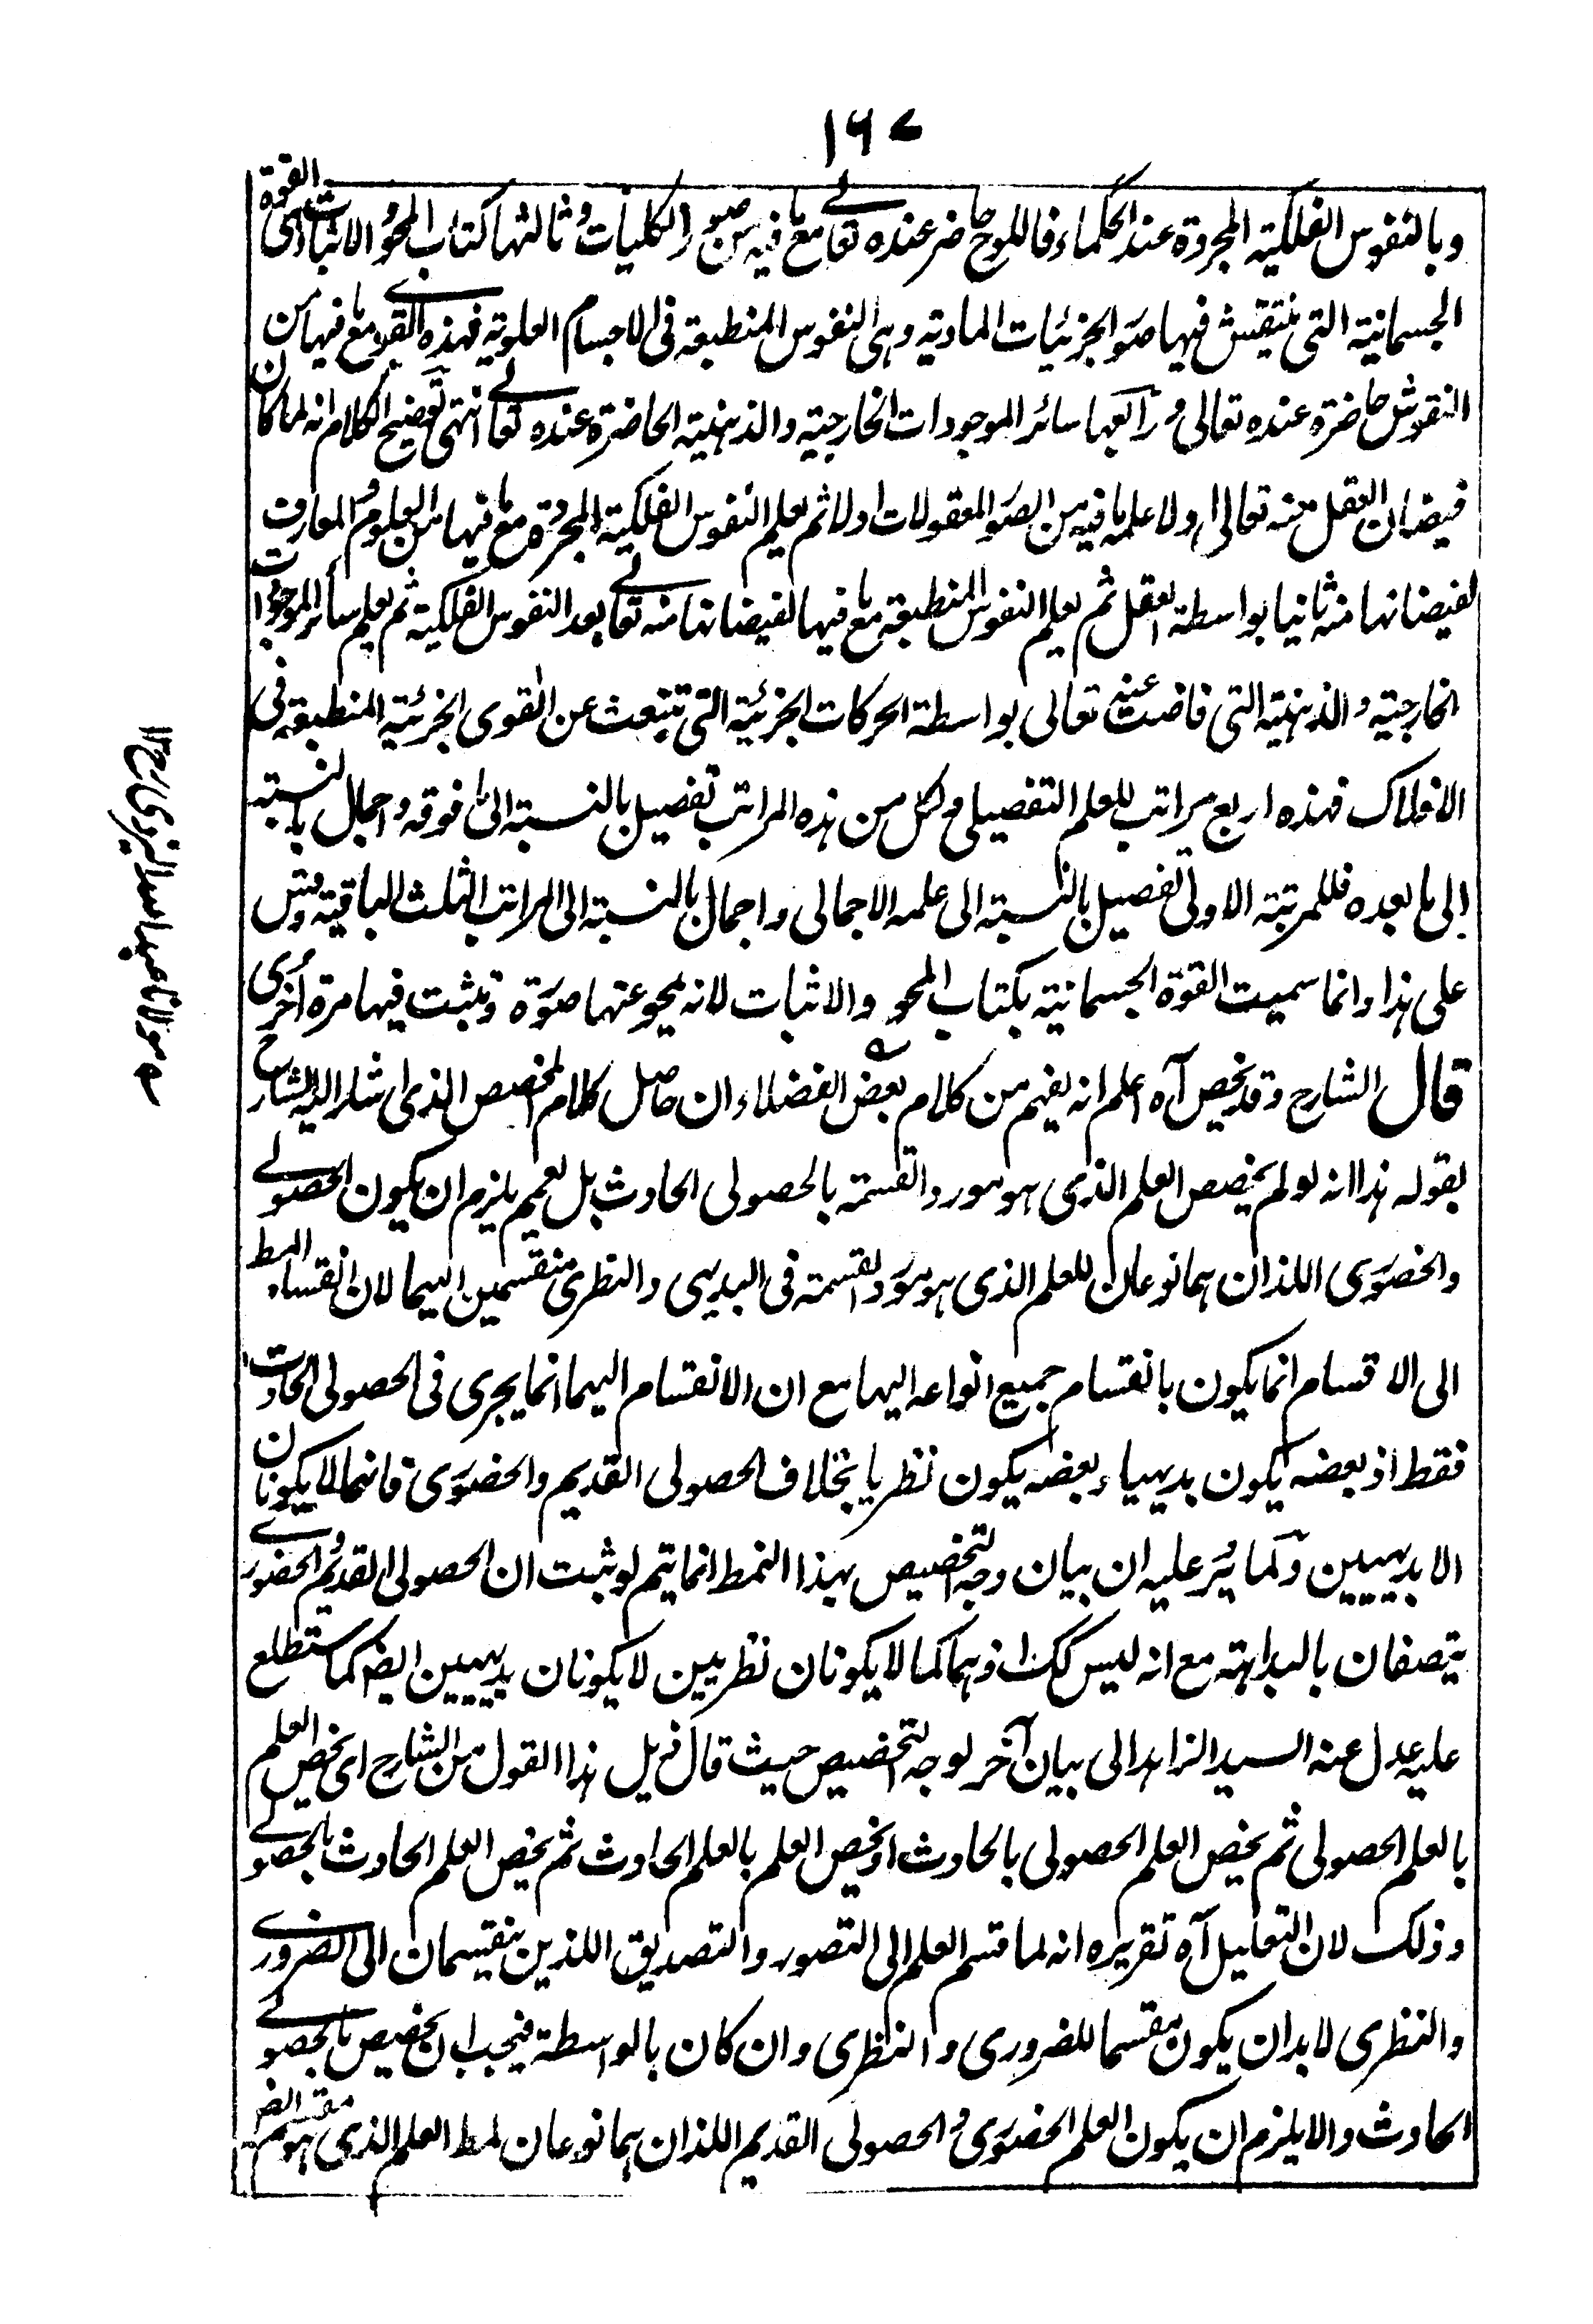 ١٦٧
وبالنفوس الفلكية المجردة عند الحكماء فاللوح حاضر عنده تعالے مع ما فيه من صور الكليات وثالثها كتاب المحو والاثبات وهى القوة
الجسمانية التى ينتقش فيها صور الجزئيات المادية وهى النفوس المنطبعة فى الاجسام العلوية فهذه القوے مع ما فيها من
النقوش حاضرة عنده تعالى ورابعها سائر الموجودات الخارجية والذهنية الحاضرة عنده تعالے انتهى توضيح الكلام انه لما كان
فيضان العقل منه تعالى اولا علمه بما فيه من الصور المعقولات اولا ثم يعلم النفوس الفلكية المجردة مع ما فيها من العلوم والمعارف
لفيضانها منه ثانيا بواسطة العقل ثم يعلم النفوس المنطبعة مع ما فيها لفيضانها منه تعالے بعد النفوس الفلكية ثم يعلم سائر الموجودات
الخارجية والذهنية التى فاضت عنه تعالى بواسطة الحركات الجزئية التى تنبعث عن القوى الجزئية المنطبعة فى
الافلاك فهذه اربع مراتب للعلم التفصيلى وكل من هذه المراتب تفصيل بالنسبة الى ما فوقه واجمال بالنسبة
الى ما بعده فللمرتبة الاولى تفصيل بالنسبة الى علمه الاجمالى واجمال بالنسبة الى المراتب الثلث الباقية وقس
على هذا وانما سميت القوة الجسمانية بكتاب المحو والاثبات لانه يمحو عنها صورة ويثبت فيها مرة اخرى
قال الشارح وقد يخص آه اعلم انه يفهم من كلام بعض الفضلاء ان حاصل كلام المخصص الذى اشار اليه الشارح
بقوله هذا انه لو لم يخصص العلم الذى هو مورد القسمة بالحصولى الحادث بل يعمم يلزم ان يكون الحصولے
والحضورى اللذان هما نوعان للعلم الذى هو مورد القسمة فى البديهى والنظرى منقسمين اليهما لان انقسام المط
الى الاقسام انما يكون بانقسام جميع انواعه اليها مع ان الانقسام اليهما انما يجرى فى الحصولى الحادث
فقط اذ بعضه يكون بديهيا وبعضه يكون نظريا بخلاف الحصولى القديم والحضورى فانهما لا يكونان
الا بديهيين وكما يرد عليه ان بيان وجه التخصيص بهذا النمط انما يتم لو ثبت ان الحصولى القديم والحضورے
يتصفان بالبداهة مع انه ليس كك اذ هما كما لا يكونان نظريين لا يكونان بديهيين ايضا كما ستطلع
عليه عدل عنه السيد الزاهد الى بيان آخر لوجه التخصيص حيث قال فى ذيل هذا القول من الشارح اى يخص العلم
بالعلم الحصولى ثم يخص العلم الحصولى بالحادث او يخص العلم بالعلم الحادث ثم يخص العلم الحادث بالحصولے
وذلك لان التعليل آه تقريره انه لما قسم العلم الى التصور والتصديق اللذين ينقسمان الى الضرورے
والنظرى لا بد ان يكون مقسما للضرورى والنظرى وان كان بالواسطة فيجب ان تخصيص بالحصولے
الحادث والا يلزم ان يكون العلم الحضورى والحصولى القديم اللذان هما نوعان لمط العلم الذى هو مقسم الض